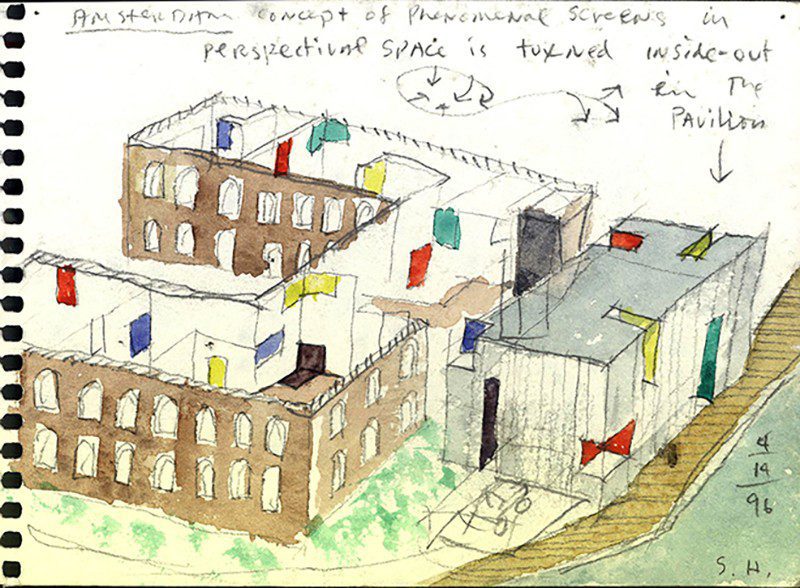 AMSTERDAM CONCEPT OF PHENOMENAL SCREENS in
PERSPECTIVAL SPACE is TURNED INSIDE-OUT
in THE
PAVILION
4
19
96
S. H.